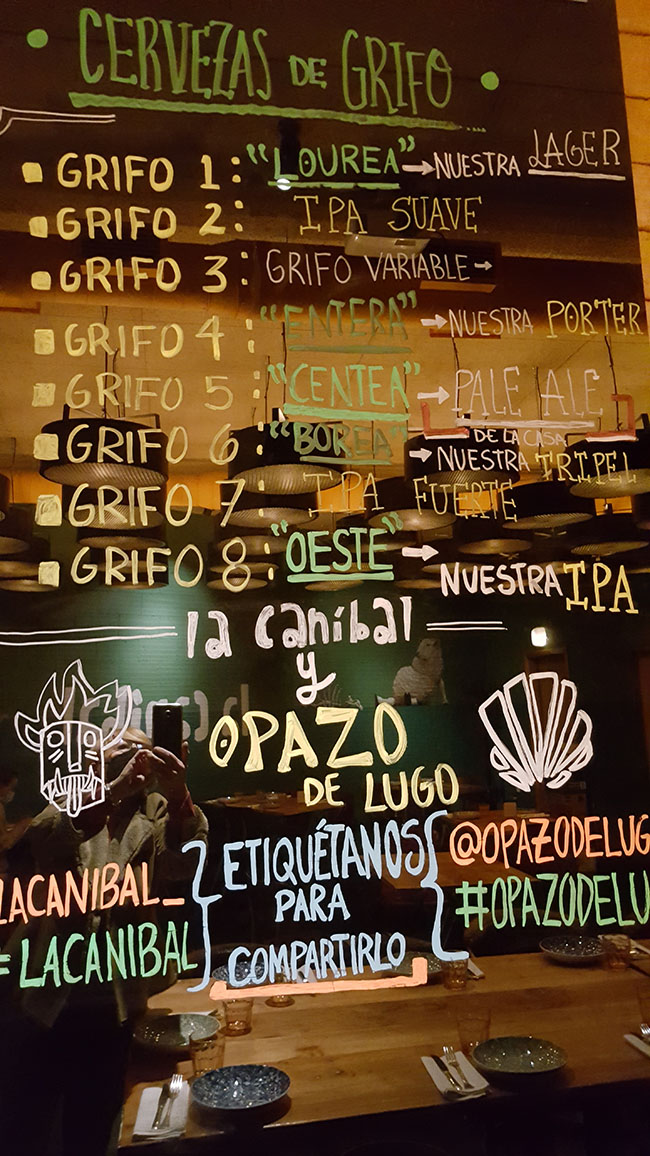 • CERVEZAS DE GRIFO •
GRIFO 1: "LOUREA" → NUESTRA LAGER
GRIFO 2: IPA SUAVE
GRIFO 3: GRIFO VARIABLE →
GRIFO 4: "ENTERA" → NUESTRA PORTER
GRIFO 5: "CENTEA" → PALE ALE
DE LA CASA
GRIFO 6: "BOREA" → NUESTRA TRIPEL
GRIFO 7: IPA FUERTE
GRIFO 8: "OESTE" → NUESTRA IPA
la caníbal
y
OPAZO
DE LUGO
LACANIBAL_
LACANIBAL
ETIQUÉTANOS
PARA
COMPARTIRLO
@OPAZODELUG
#OPAZODELU